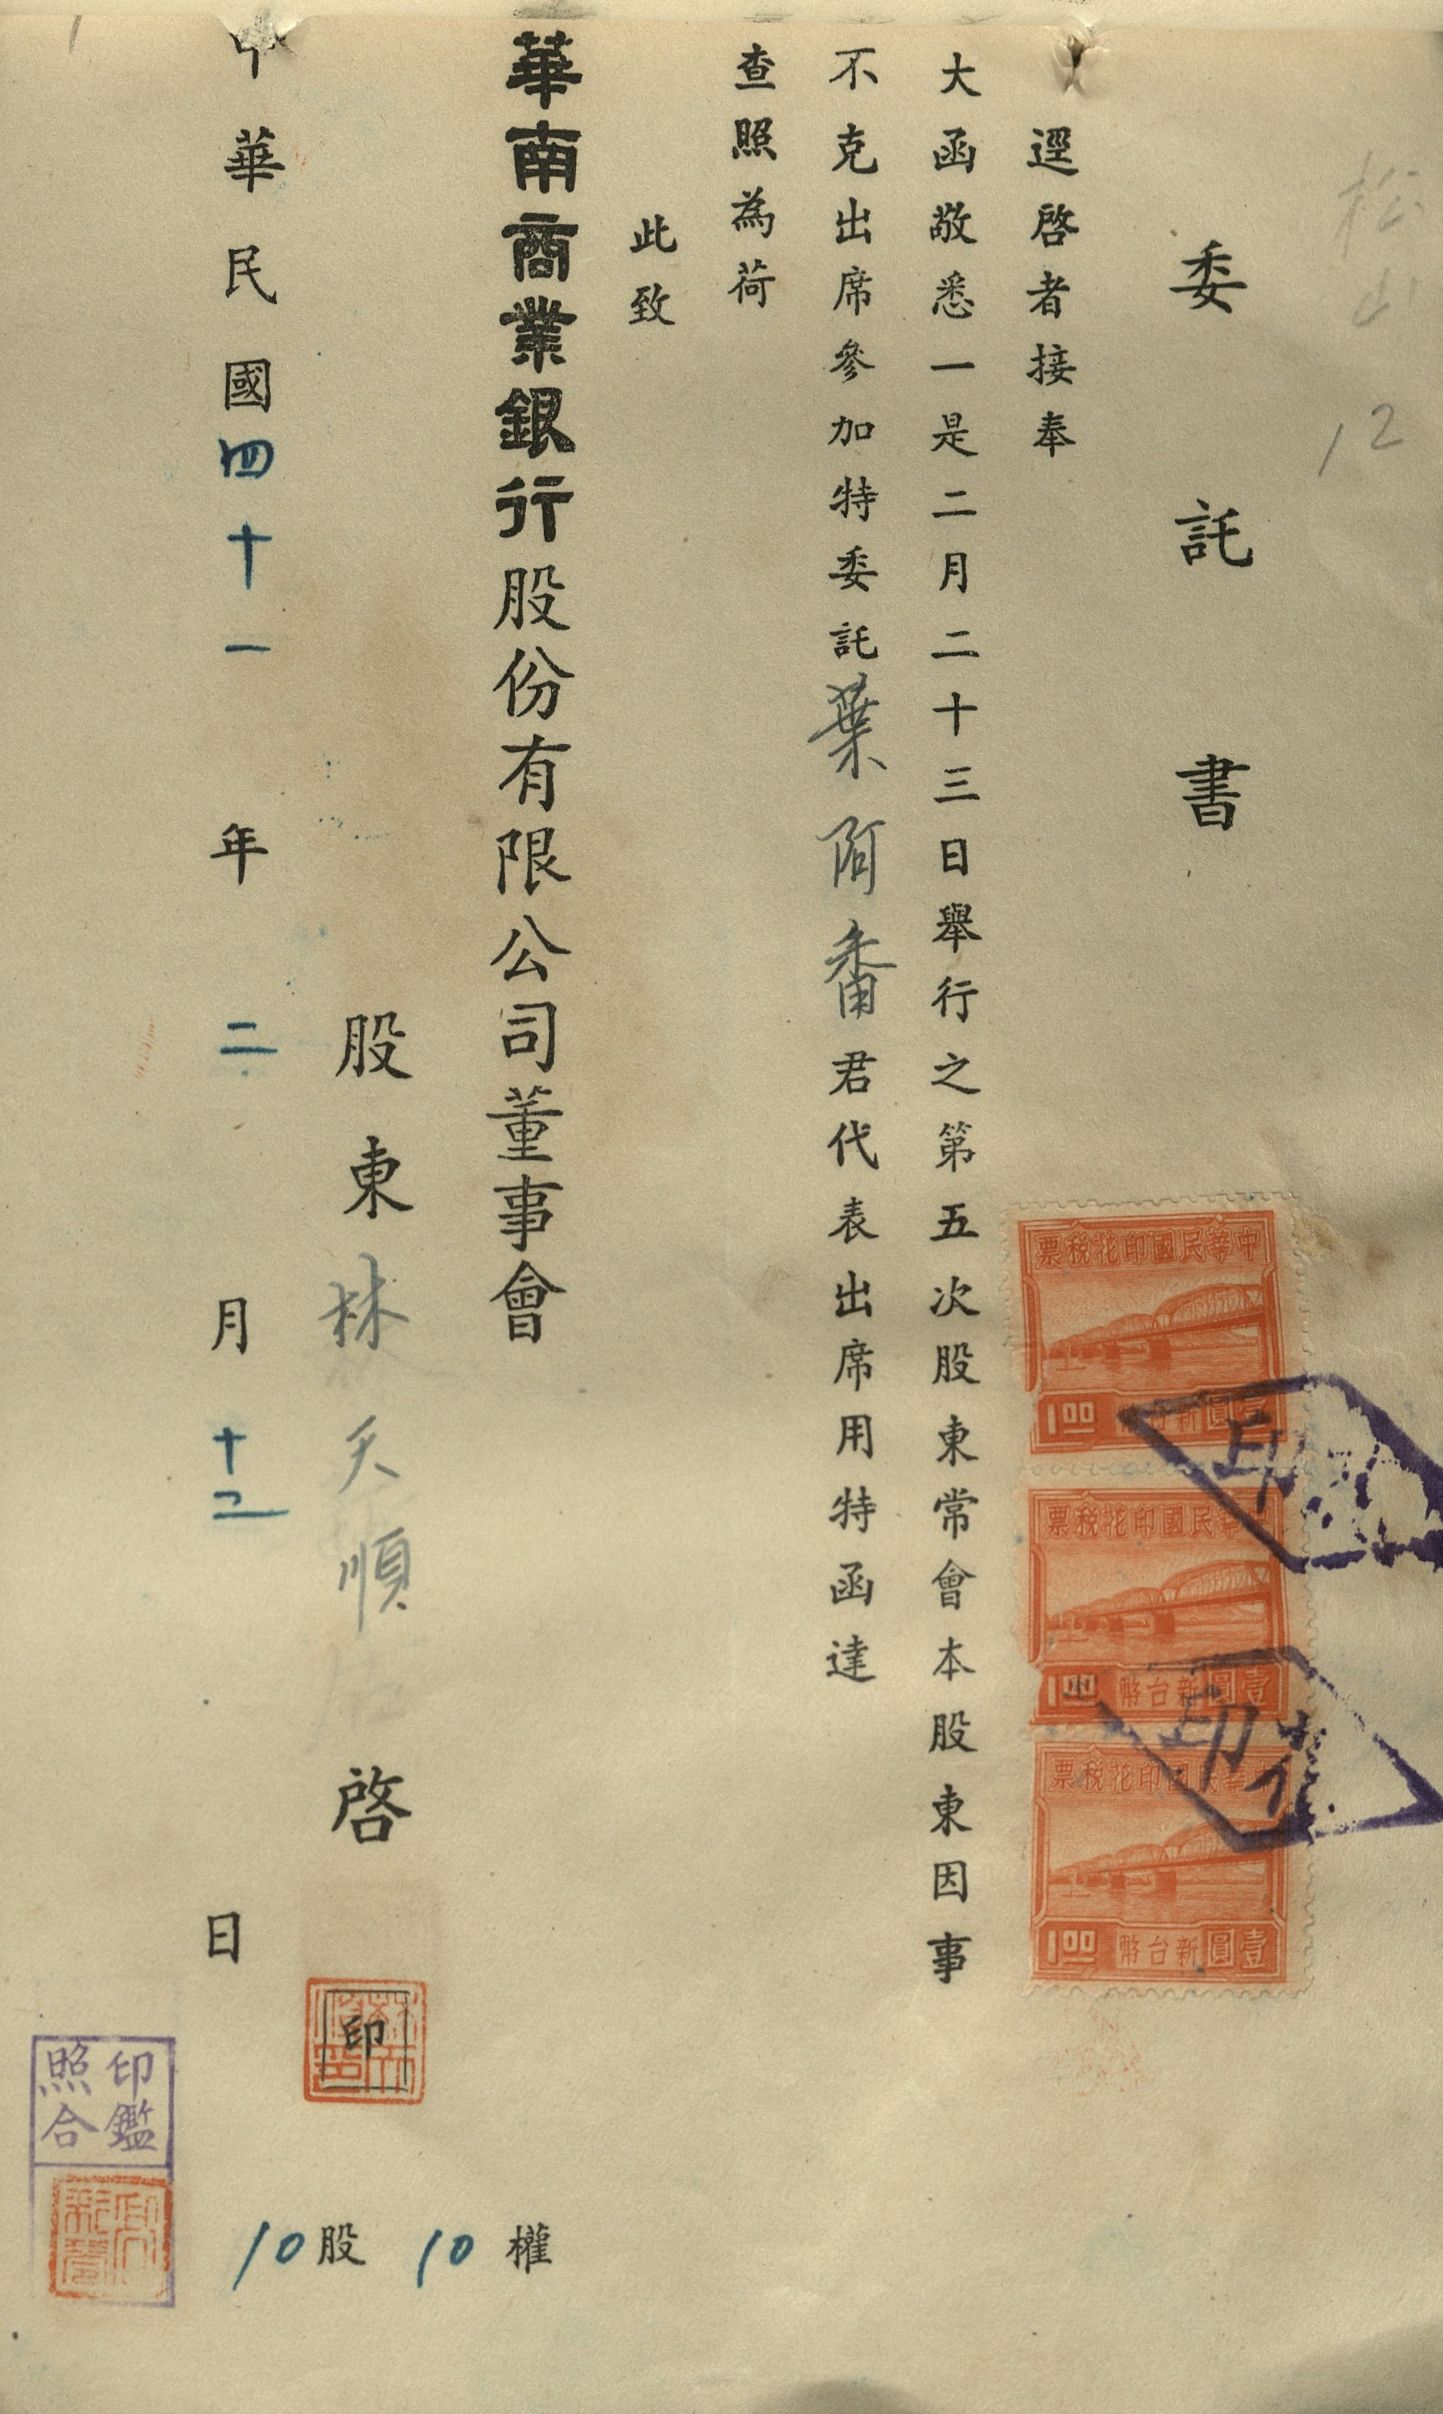 松山
12
委託書
逕啓者接奉
大函敬悉一是二月二十三日舉行之第五次股東常會本股東因事
不克出席參加特委託葉阿番君代表出席用特函達
查照為荷
此致
華南商業銀行股份有限公司董事會
股東林天順啓
印
中華民國四十一年二月十二日
10股 10權
印鑑
照合
中華民國印花稅票
壹圓新台幣
1.00
中華民國印花稅票
壹圓新台幣
1.00
中華民國印花稅票
壹圓新台幣
1.00
印花